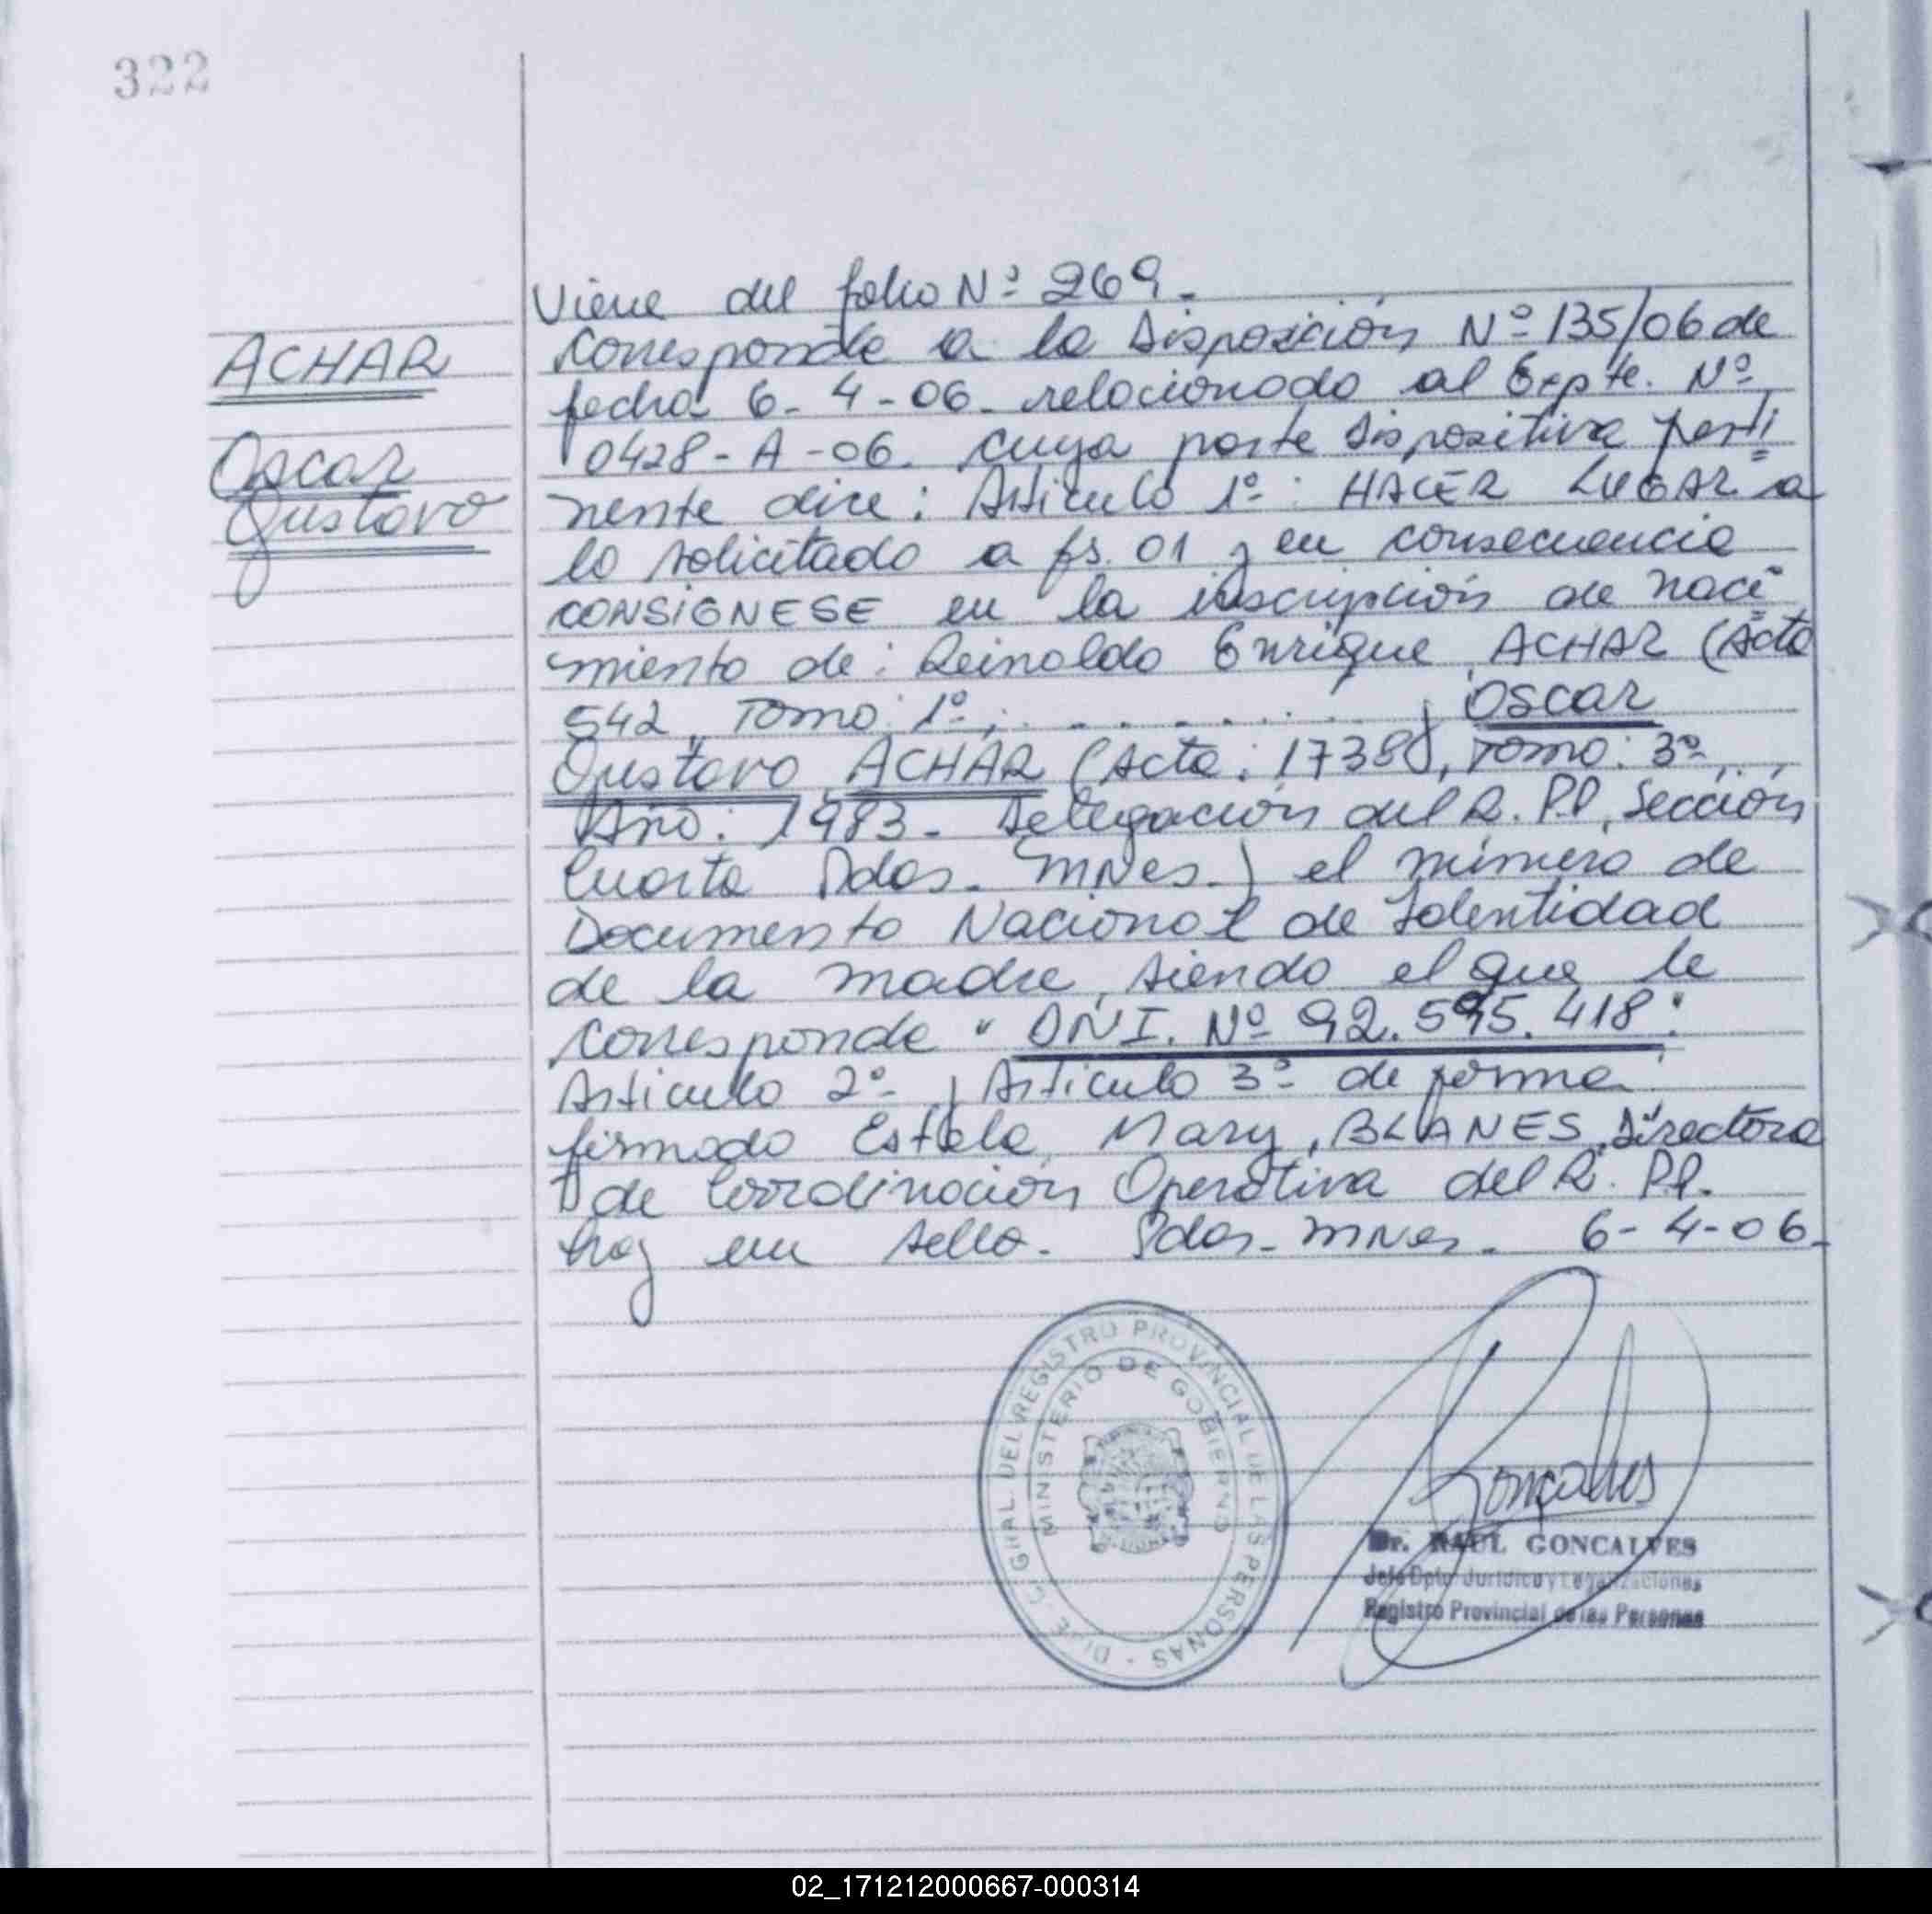 322
Viene del folio Nº 269.-
ACHAR
Oscar
Gustavo
Corresponde a la Disposición Nº 135/06 de
fecha 6-4-06- relacionado al Expte. Nº
0428-A-06. Cuya parte dispositiva perti
nente dice: Articulo 1º: HACER LUGAR a
lo solicitado a fs. 01 y en consecuencia
CONSIGNESE en la inscripción de naci
miento de: Reinaldo Enrique ACHAR (Acta
542, Tomo: 1º; . . . . . . . . . y Oscar
Gustavo ACHAR (Acta: 1738, Tomo: 3º, . . ,
Año: 1983- Delegación del R. P.P, Sección
Cuarta Pdas- MNes.) el número de
Documento Nacional de Identidad
de la madre, siendo el que le
corresponde "DNI. Nº 92.595.418"
Articulo 2º y Articulo 3º- de forma
firmado Estela Mary, BLANES, Directora
de Coordinación Operativa del R. P.P.
hay un sello- Pdas- MNes- 6-4-06-
GRAL. DEL REGISTRO PROVINCIAL DE LAS PERSONAS
MINISTERIO DE GOBIERNO
Goncalves
Dr. RAUL GONCALVES
Jefe Dpto Juridico y Legalizaciones
Registro Provincial de las Personas
02_171212000667-000314